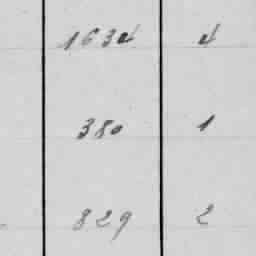 1634 4
380 1
829 2